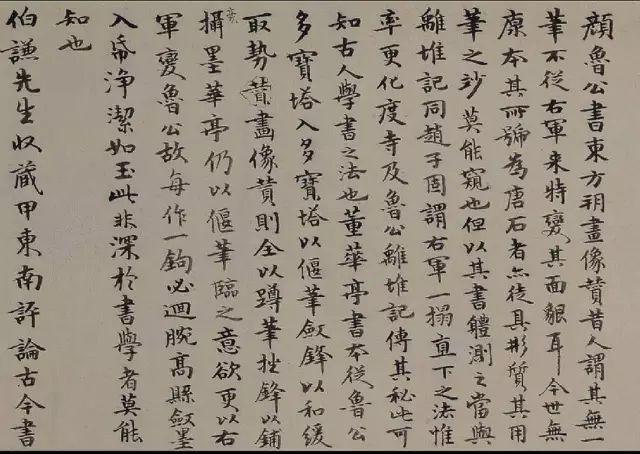 顔魯公書東方朔畫像贊昔人謂其無一
筆不從右軍来特變其面貌耳今世無
原本其所號為唐石者亦徒具形質其用
筆之妙莫能窺也但以其書體測之當與
離堆記同趙子固謂右軍一搨直下之法惟
率更化度寺及魯公離堆記傳其秘此可
知古人學書之法也董華亭書本從魯公
多寶塔入多寶塔以偃筆斂鋒以和緩
取勢贊畫像贊則全以蹲筆挫鋒以鋪
攝墨華亭仍以偃筆臨之意欲更以右
軍變魯公故每作一鉤必迴腕高懸斂墨
入帋浄潔如玉此非深於書學者莫能
知也
伯謙先生収蔵甲東南評論古今書